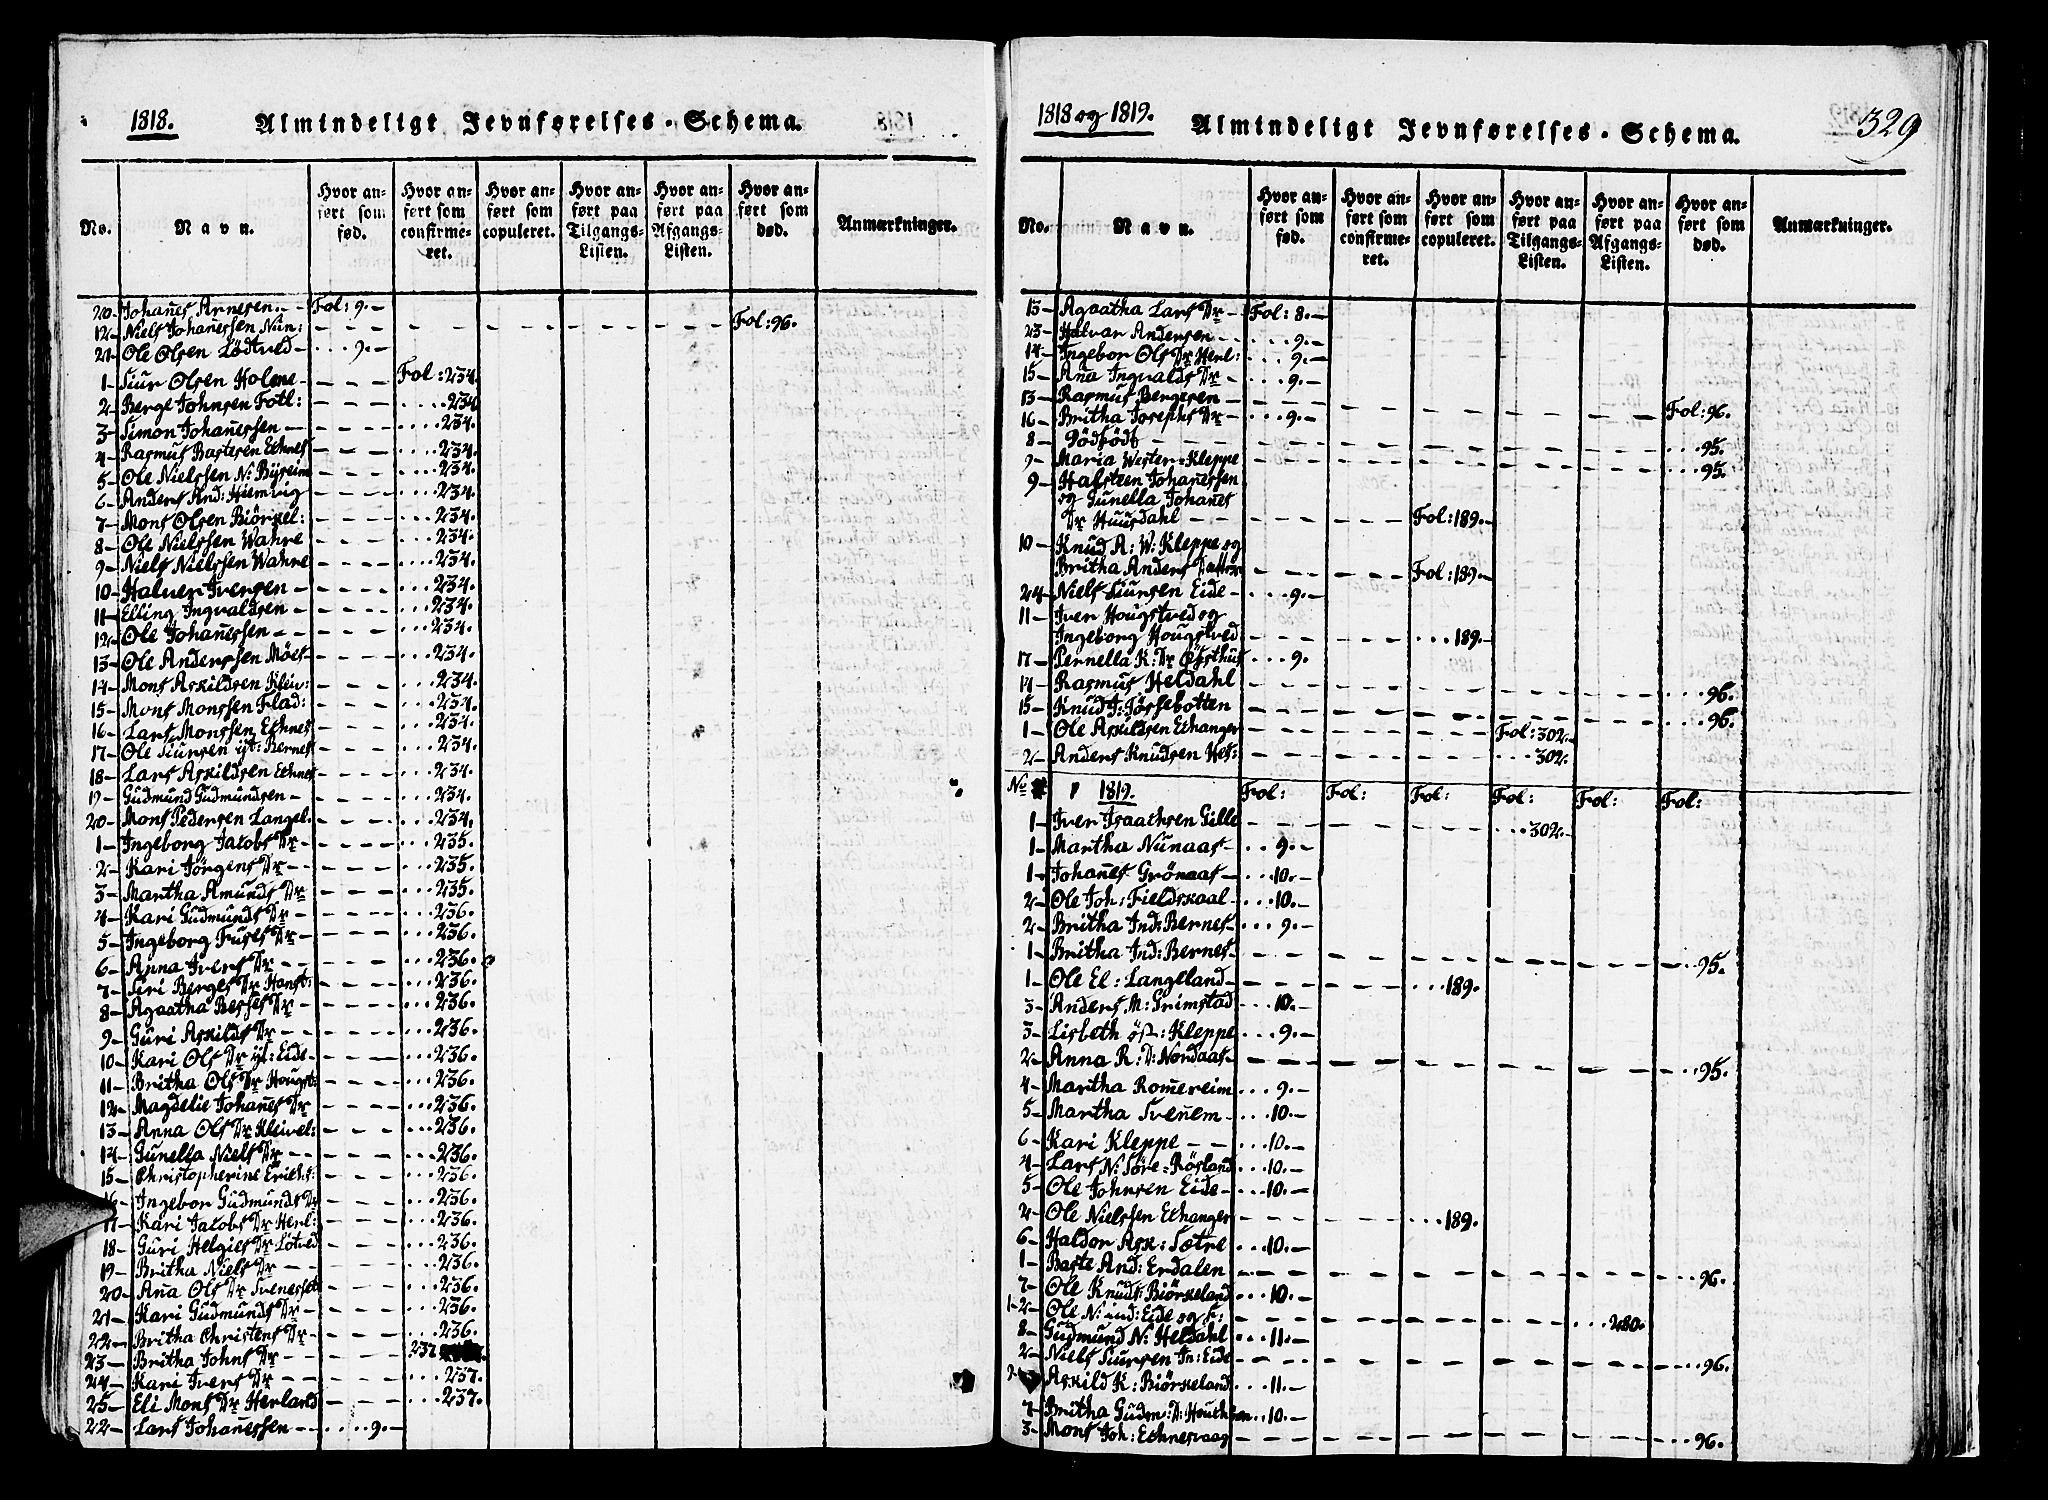 1818.
Almindeligt Jevnførelses-Schema.
No.
Navn.
Hvor anført som fød.
Hvor anført som confirmeret.
Hvor anført som copuleret.
Hvor anført paa Tilgangs-Listen.
Hvor anført paa Afgangs-Listen.
Hvor anført som død.
Anmærkninger.
20- Johan̄es Arnesen. - - Fol: 9.-
12- Niels Johan̄essen Nūn: - - - - Fol: 96.
21- Ole Olsen Lödtved - ... 9.-
1- Siur Olsen Holene - - - - Fol: 234.
2- Berge Johnsen Fotl: - - - ....234
3- Simon Johan̄essen - - - - ....234.
4- Rasmus Bastesen Echnes - - - ...234.
5- Ole Nielssen N: Byseim - - - ...234.
6- Anders And: Hiemvig - - - ...234.
7- Mons Olsen Biörkel: - - - ...234.
8- Ole Nielssen Wahre - - - ...234.
9- Niels Nielssen Wahre - - - ...234.
10- Halver Iversen - - - - ...234.
11- Elling Ingvaldsen - - - - ...234.
12- Ole Johan̄essen - - - - ...234.
13- Ole Anderssen Möes- - - - ...234.
14- Mons Askildsen Kleiv: - - - ...234.
15- Mons Monssen Flad: - - - ...234.
16- Lars Monssen Echnes - - - ...234.
17- Ole Siursen yt: Bernes - - - ...234.
18- Lars Askildsen Echnes - - - ...234.
19- Gudmund Gudmundsen - - - - ...234.
20- Mons Pedersen Langel. - - - ...234.
1- Ingeborg Jacobs Dr - - - - ...235.
2- Kari Jörgens Dr - - - - ...235.
3- Martha Amunds Dr - - - ...235.
4- Kari Gudmunds Dr - - - - ...236.
5- Ingeborg Fuses Dr - - - - ...236.
6- Anna Ivers Dr - - - - ...236.
7- Siri Berges Dr Hanst: - - - ...236.
8- Agaatha Besses Dr - - - - ...236.
9- Guri Askilds Dr - - - - ...236.
10- Kari Ols Dr yt: Eide- - - - ...236.
11- Britha Ols Dr Hougst: - - - ...236.
12- Magdelie Johan̄es Dr - - - ...236.
13- Anna Ols Dr Kleivel: - - - ...236.
14- Gunella Niels Dr - - - - ...236.
15- Christopherine Erichs: - - - ...236.
16- Ingebor Gudmunds Dr - - - ...236.
17- Kari Jacobs Dr Herl: - - - ...236.
18- Guri Helgies Dr Lötved - - - ...236.
19- Britha Niels Dr - - - - ...236.
20- An̄a Ols Dr Svenesset - - - ...236.
21- Kari Gudmunds Dr - - - - ...236.
22- Britha Christens Dr - - - - ...236.
23- Britha Johns Dr - - - - 237
24- Kari Ivers Dr - - - - ...237.
25- Eli Mons Dr Herland - - - ...237.
22- Lars Johan̄essen - ....9.-
1818 og 1819.
Almindeligt Jevnførelses-Schema.
329
No.
Navn.
Hvor anført som fød.
Hvor anført som confirmeret.
Hvor anført som copuleret.
Hvor anført paa Tilgangs-Listen.
Hvor anført paa Afgangs-Listen.
Hvor anført som død.
Anmærkninger.
13- Agaatha Lars Dr - Fol: 8.-
23- Halvar Andersen - ....9.-
14- Ingebor Ols Dr Herl: ...9.-
15- An̄a Ingvalds Dr - ...9.-
13- Rasmus Bergesen - - - - Fol: 96.
16- Britha Josephs Dr - ...9.-
8- Dödfödt - - - - ...95.
9- Maria Wester-Kleppe - - - ...95.
9- Halsteen Johan̄essen
og Gunella Johan̄es
Dr Huusdahl - - - - Fol: 189.-
10- Knud A: W: Kleppe og
Britha Anders Datter - - - Fol: 189-
24- Niels Siursen Eide - ...9.-
11- Iver Hougstved og
Ingeborg Hougstved - - - ...189.-
17- Pernella K: Dr Östhus ...9.
14- Rasmus Heldahl - - - ....96.
15- Knud J: Gössebotten - - - ....96.
1- Ole Askildsen Echanger - - - Fol: 302.-
2- Anders Knudsen Hes: - - - ...302.
No 1819. Fol: Fol: Fol: Fol: Fol: Fol:
1- Iver Isaachsen Gille - - - ...302.-
1- Martha Nūnaas- ...9.-
1- Johan̄es Grönaas- ...10.-
2- Ole Joh: Fieldskaal- ...10.-
2- Britha Ind: Bernes- ...9.-
1- Britha Ind: Bernes- - - - ...95.
1- Ole El: Langeland- - - - ...189.
3- Anders M: Grimstad ...10.-
3- Lisbeth öst: Kleppe ...9.-
2- Anna R: D: Nordaas- - - - ...95.
4- Martha Rom̄ereim ...9.-
5- Martha Sven̄em- ...10.-
6- Kari Kleppe - - ...10.-
4- Lars N: Söre=Rösland ...10.-
5- Ole Johnsen Eide- ...10.-
2- Ole Nielssen Echanger - - - ...189.
6- Haldor Ask: Sætre ...10.-
1- Baste And: Erdalen - - - ....96.
7- Ole Knuds: Biörkeland ...10.-
1-2- Ole N: ind: Eide og F: - - - ...280.
8- Gudmund N: Heldahl ...11.-
2- Niels Siursen In: Eide - - - ....96.
Askild K: Biörkeland ...11.-
7- Britha Gudm: D: ...10.-
3- Mons Joh: Echnesvaag - - - ...96.